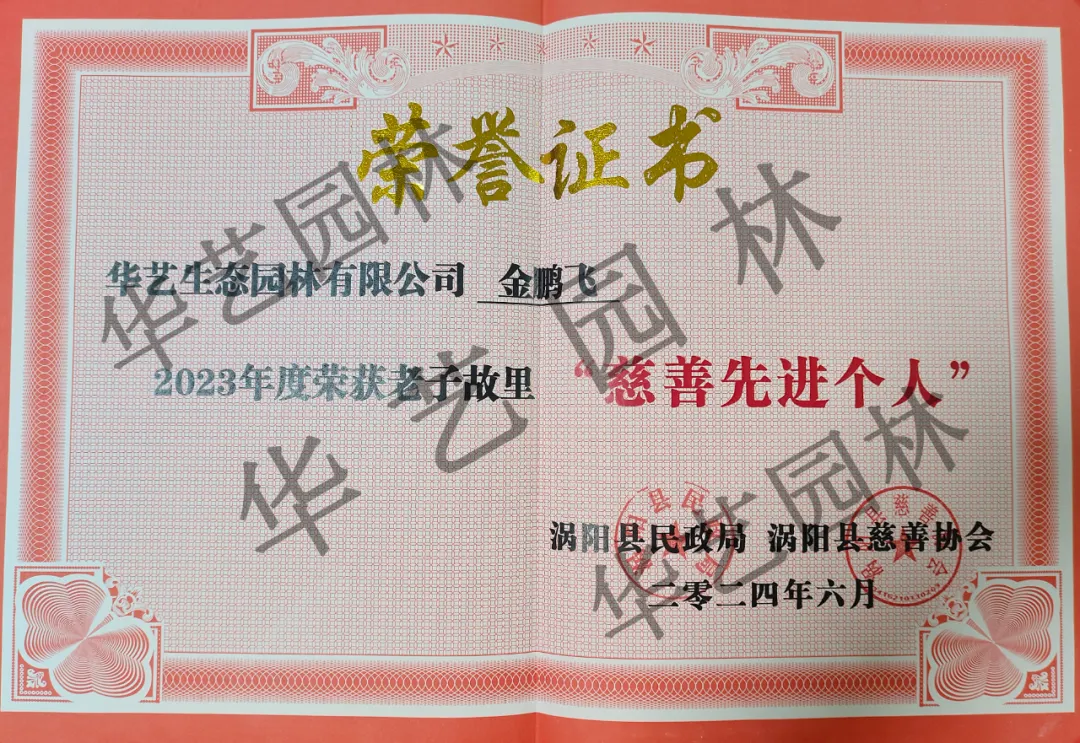 荣誉证书
华艺生态园林有限公司 金鹏飞
2023年度荣获老子故里 “慈善先进个人”
涡阳县民政局 涡阳县慈善协会
二零二四年六月
华艺园林
华艺园林
华艺园林